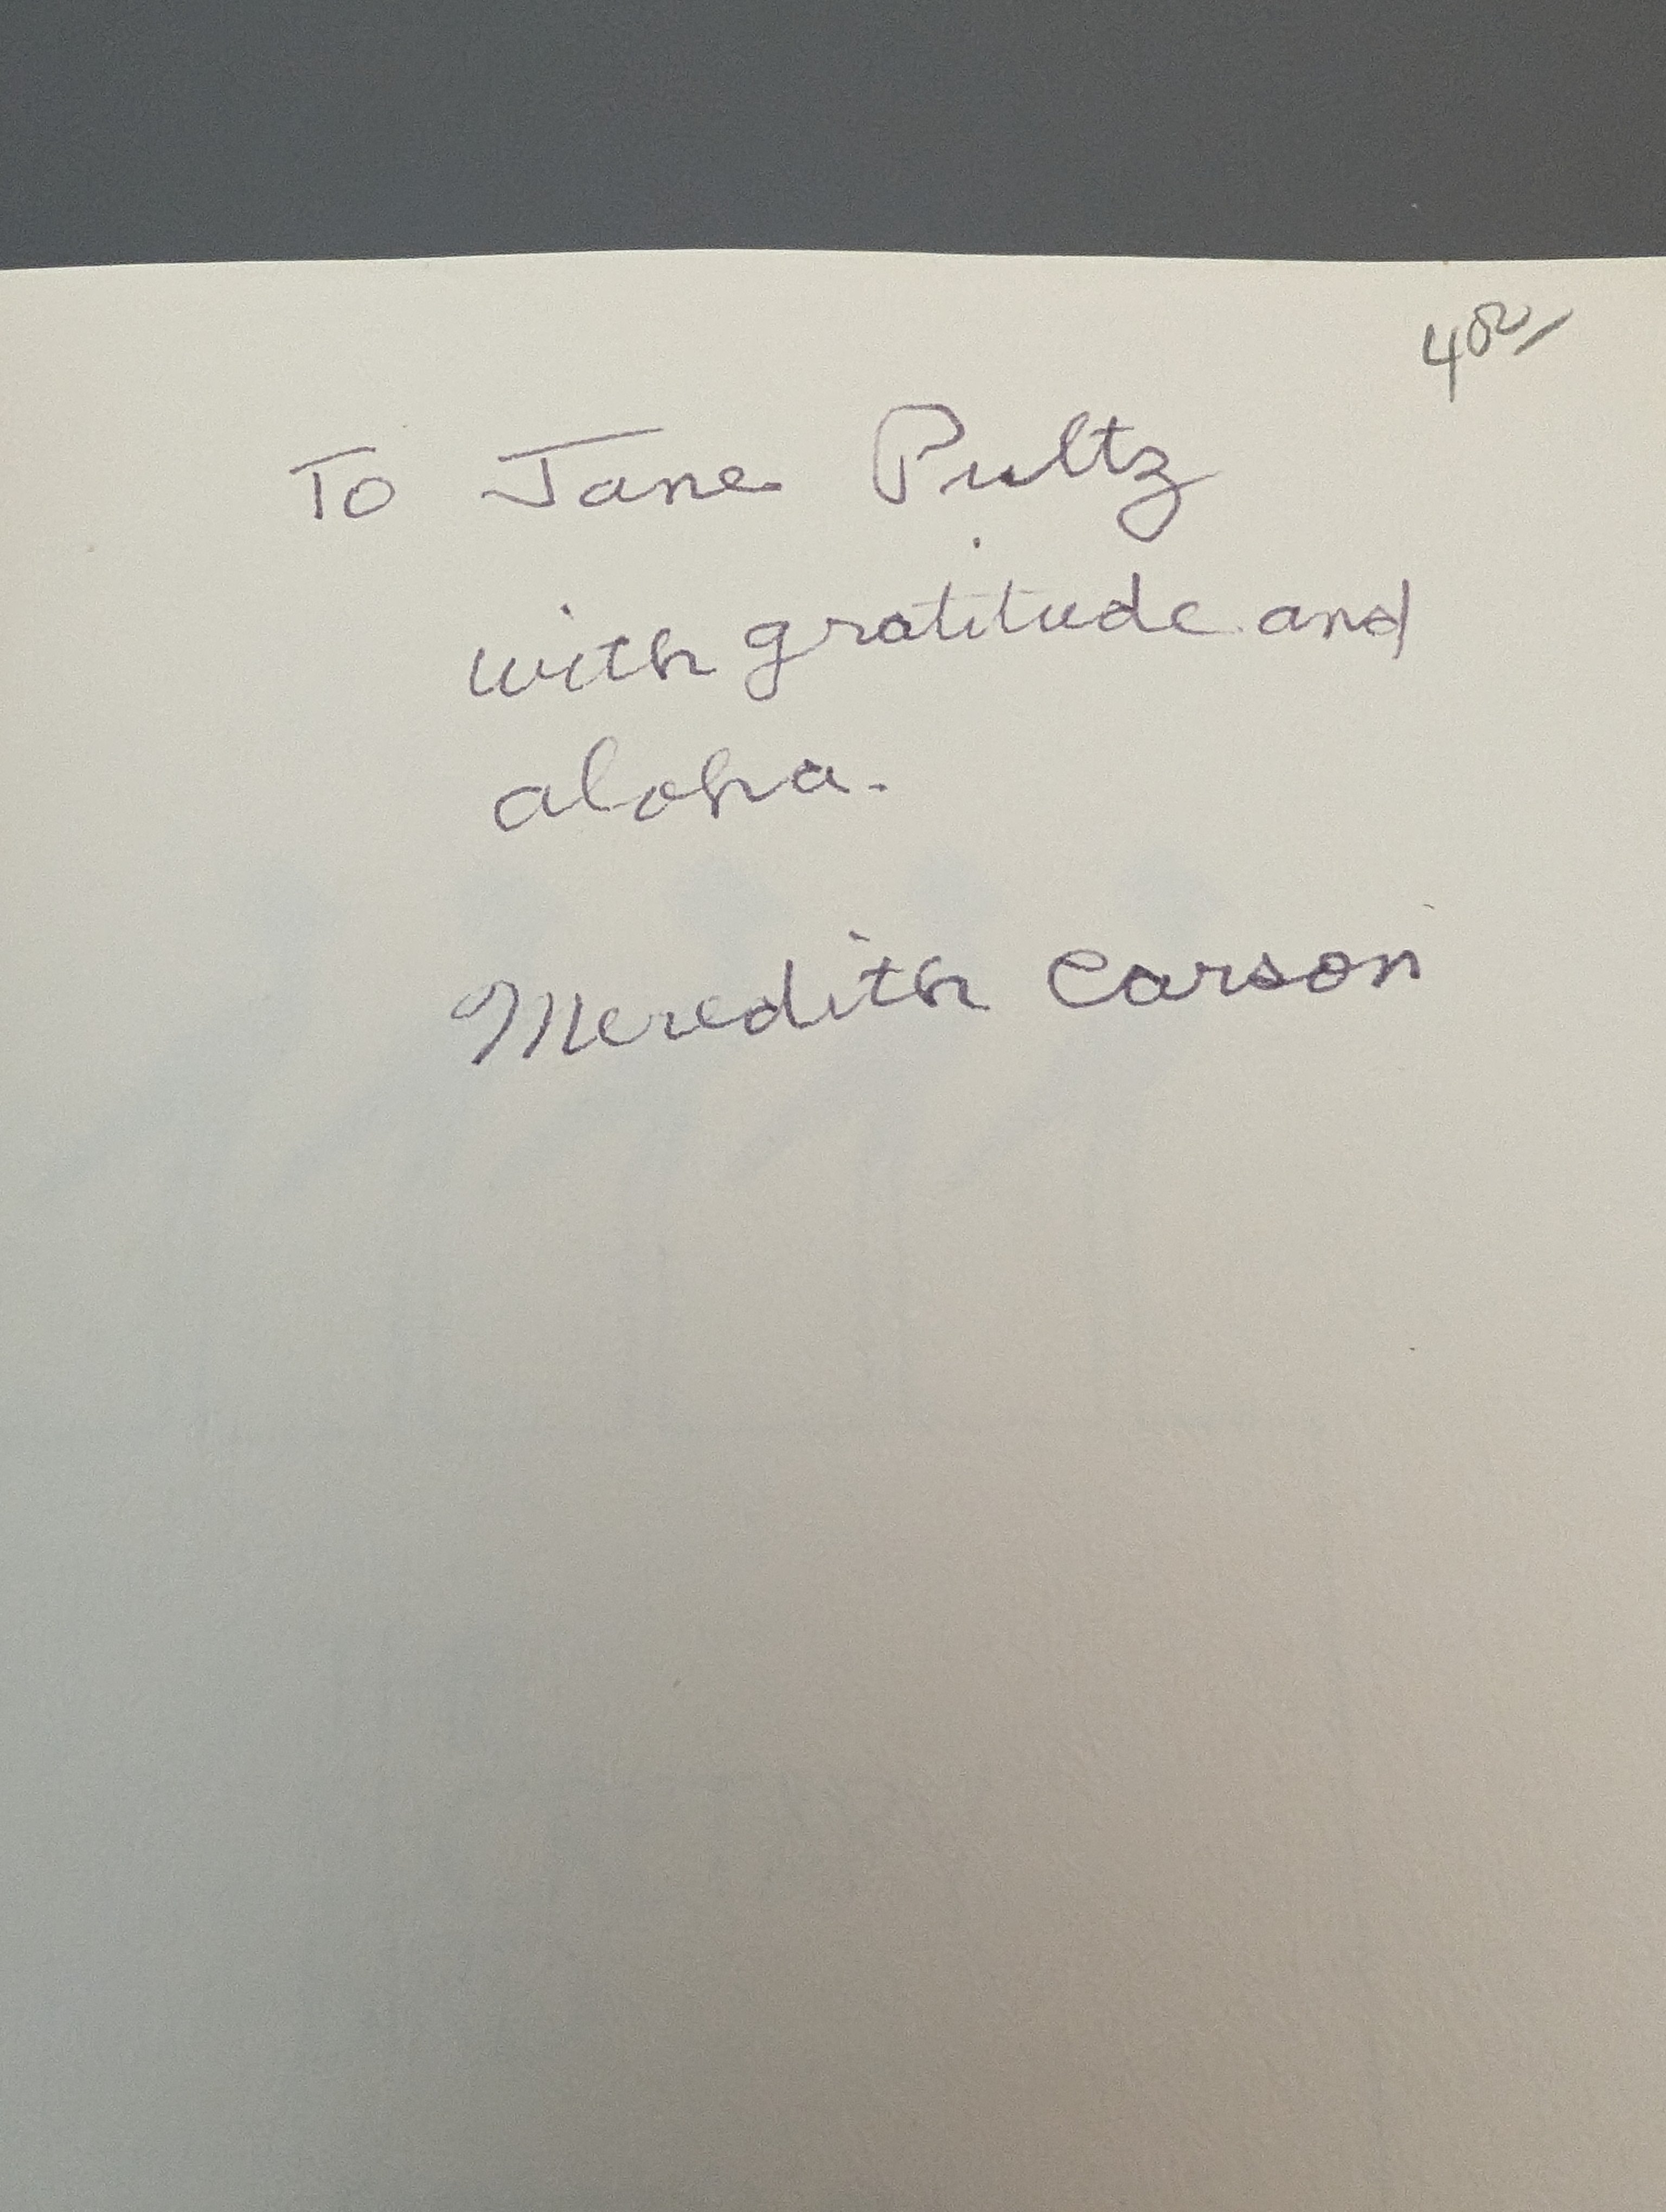 To Jane Pultz
with gratitude and
aloha.
Meredith Carson